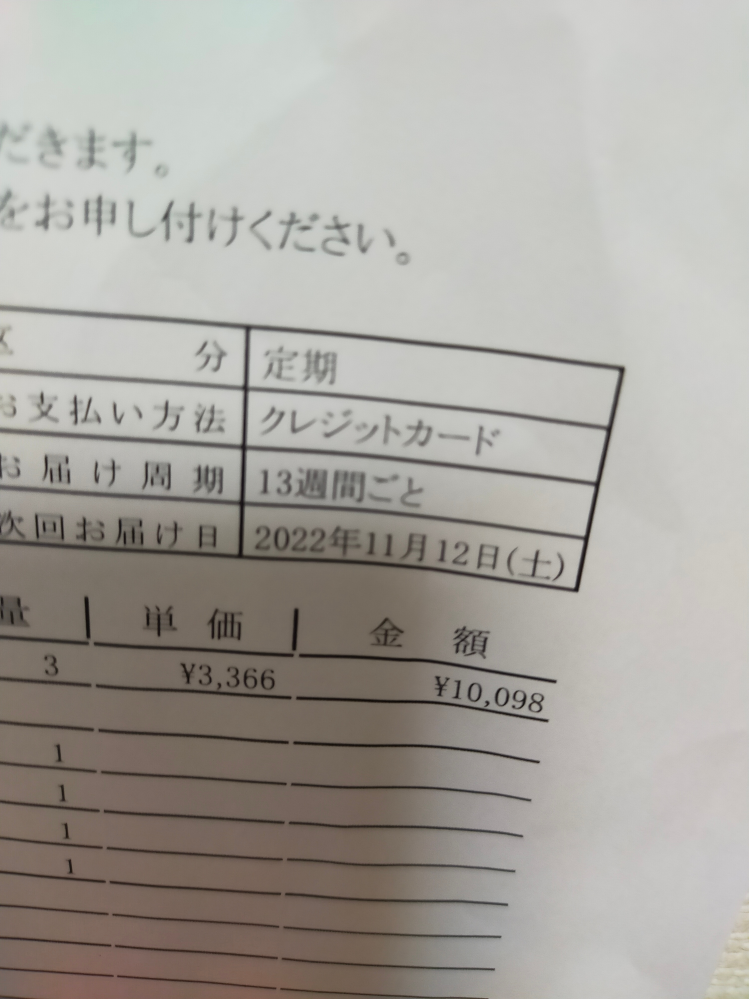 だきます。
をお申し付けください。
区 分 定期
お支払い方法 クレジットカード
お届け周期 13週間ごと
次回お届け日 2022年11月12日(土)
量 単価 金額
3 ¥3,366 ¥10,098
1
1
1
1